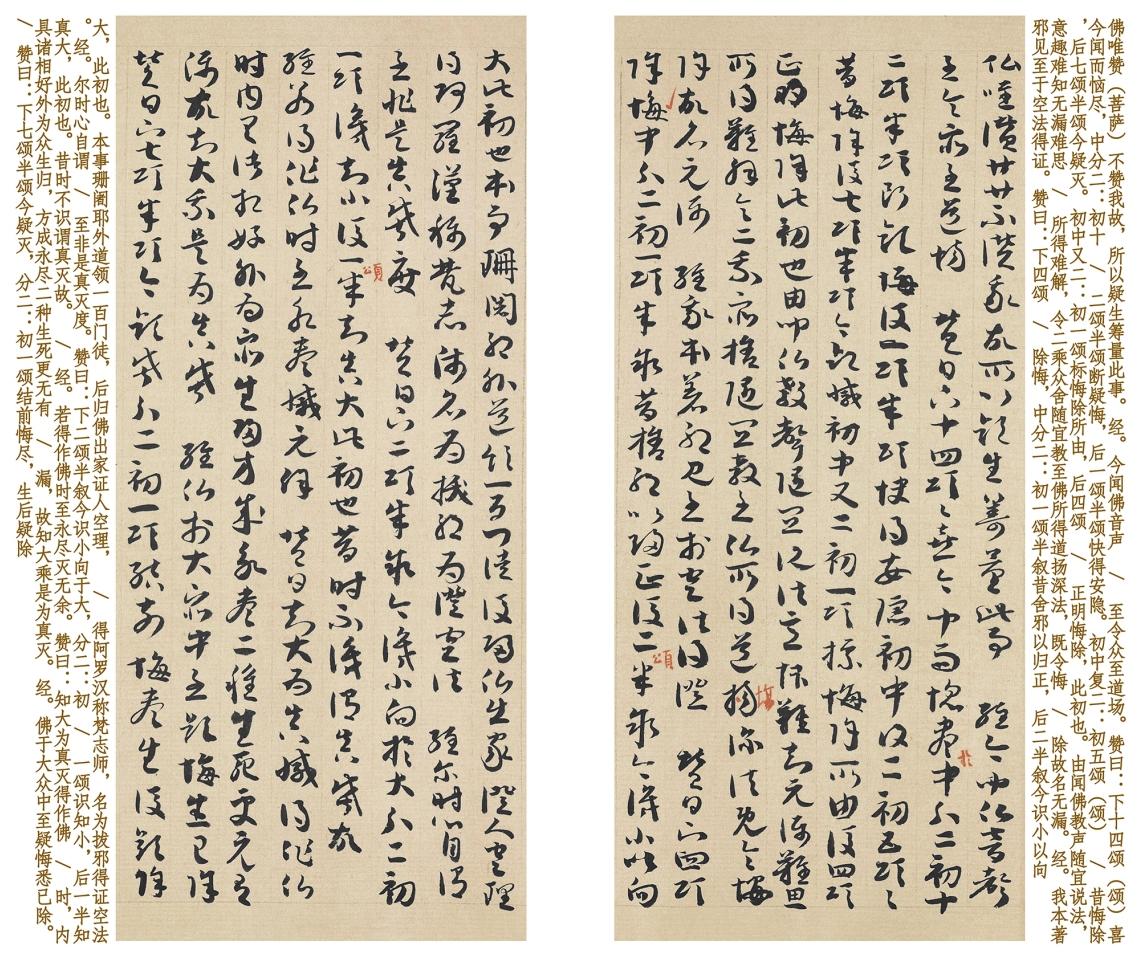 佛唯赞（菩萨）不赞我故，所以疑生筹量此事。经。今闻佛音声 / 至令众至道场。赞曰：下十四颂（颂）喜
今闻而恼尽，中分二：初十 / 二颂半颂断疑悔，后一颂半颂快得安隐。初中复二：初五颂（颂） / 昔悔除
，后七颂半颂今疑灭。初中又二：初一颂标悔除所由，后四颂 / 正明悔除，此初也。由闻佛教声随宜说法，
意趣难知无漏难思 / 所得难解，令二乘众舍随宜教至佛所得道扬深法，既令悔 / 除故名无漏。经。我本著
邪见至于空法得证。赞曰：下四颂 / 除悔，中分二：初一颂半叙昔舍邪以归正，后二半叙今识小以向
仏唯讃𦬇不讃我故所以疑生筹量此事 经今闻仏音声
至令众至道场 赞曰下十四颂喜今闻而恼尽中分二初十
二颂半颂断疑悔后一颂半颂快得安隐初中复二初五颂
昔悔除后七颂半颂今疑灭初中又二初一颂标悔除所由后四颂
正明悔除此初也由闻仏教声随宜说法意趣难知无漏难思
所得难解令二乘众舍随宜教至仏所得道扬深法既令悔
除故名无漏 经我本著邪见至于空法得证 赞曰下四颂
除悔中分二初一颂半叙昔舍邪以归正后二半叙今识小以向
大此初也本事珊阇耶外道领一百门徒后归仏出家证人空理
得阿罗汉称梵志师名为拔邪为证空法 经尔时心自谓
至非是真灭度 赞曰下二颂半叙今识小向于大分二初
一颂识知小后一半知真大此初也昔时不识谓真灭故
经若得作仏时至永尽灭无余 赞曰知大为真灭得作仏
时内具诸相好外为众生归方成永尽二种生死更无有
漏故知大乘是为真灭 经仏于大众中至疑悔悉已除
赞曰下七颂半颂今疑灭分二初一颂结前悔尽生后疑除
大，此初也。本事珊阇耶外道领一百门徒，后归佛出家证人空理， / 得阿罗汉称梵志师，名为拔邪得证空法
。经。尔时心自谓 / 至非是真灭度。赞曰：下二颂半叙今识小向于大，分二：初 / 一颂识知小，后一半知
真大，此初也。昔时不识谓真灭故。 / 经。若得作佛时至永尽灭无余。赞曰：知大为真灭得作佛 / 时，内
具诸相好外为众生归，方成永尽二种生死更无有 / 漏，故知大乘是为真灭。经。佛于大众中至疑悔悉已除。
/ 赞曰：下七颂半颂今疑灭，分二：初一颂结前悔尽，生后疑除